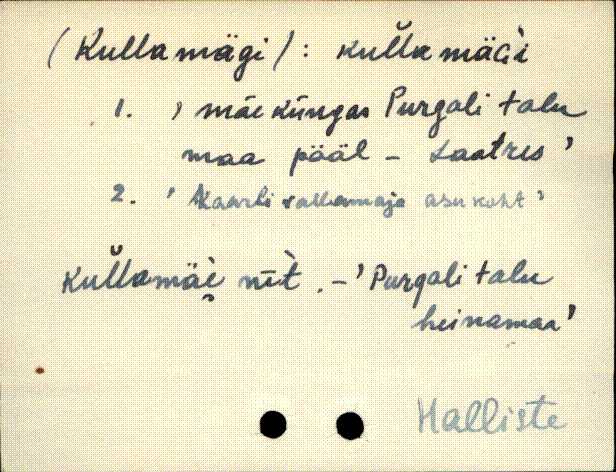 (Kullamägi): kuľlamäGi
1. 'mäeküngas Purgali talu
maa pääl - Laatres'
2. 'Kaarli vallamaja asukoht'
Kuľlamäe nīt. - 'Purgali talu
heinamaa'
Halliste